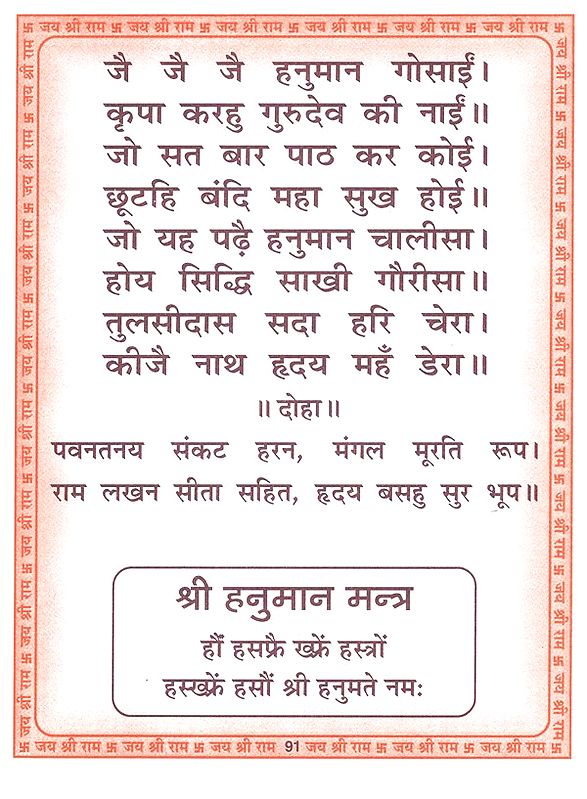 卐 जय श्री राम 卐 जय श्री राम 卐 जय श्री राम 卐 जय श्री राम 卐 जय श्री राम 卐 जय श्री राम 卐
जै जै जै हनुमान गोसाईं।
कृपा करहु गुरुदेव की नाईं॥
जो सत बार पाठ कर कोई।
छूटहि बंदि महा सुख होई॥
जो यह पढ़ै हनुमान चालीसा।
होय सिद्धि साखी गौरीसा॥
तुलसीदास सदा हरि चेरा।
कीजै नाथ हृदय महँ डेरा॥
॥ दोहा॥
पवनतनय संकट हरन, मंगल मूरति रूप।
राम लखन सीता सहित, हृदय बसहु सुर भूप॥
श्री हनुमान मन्त्र
हौं हसफ्रै ख्फ्रें हस्त्रों
हस्ख्फ्रें हसौं श्री हनुमते नमः
卐 जय श्री राम 卐 जय श्री राम 卐 जय श्री राम 91 जय श्री राम 卐 जय श्री राम 卐 जय श्री राम 卐